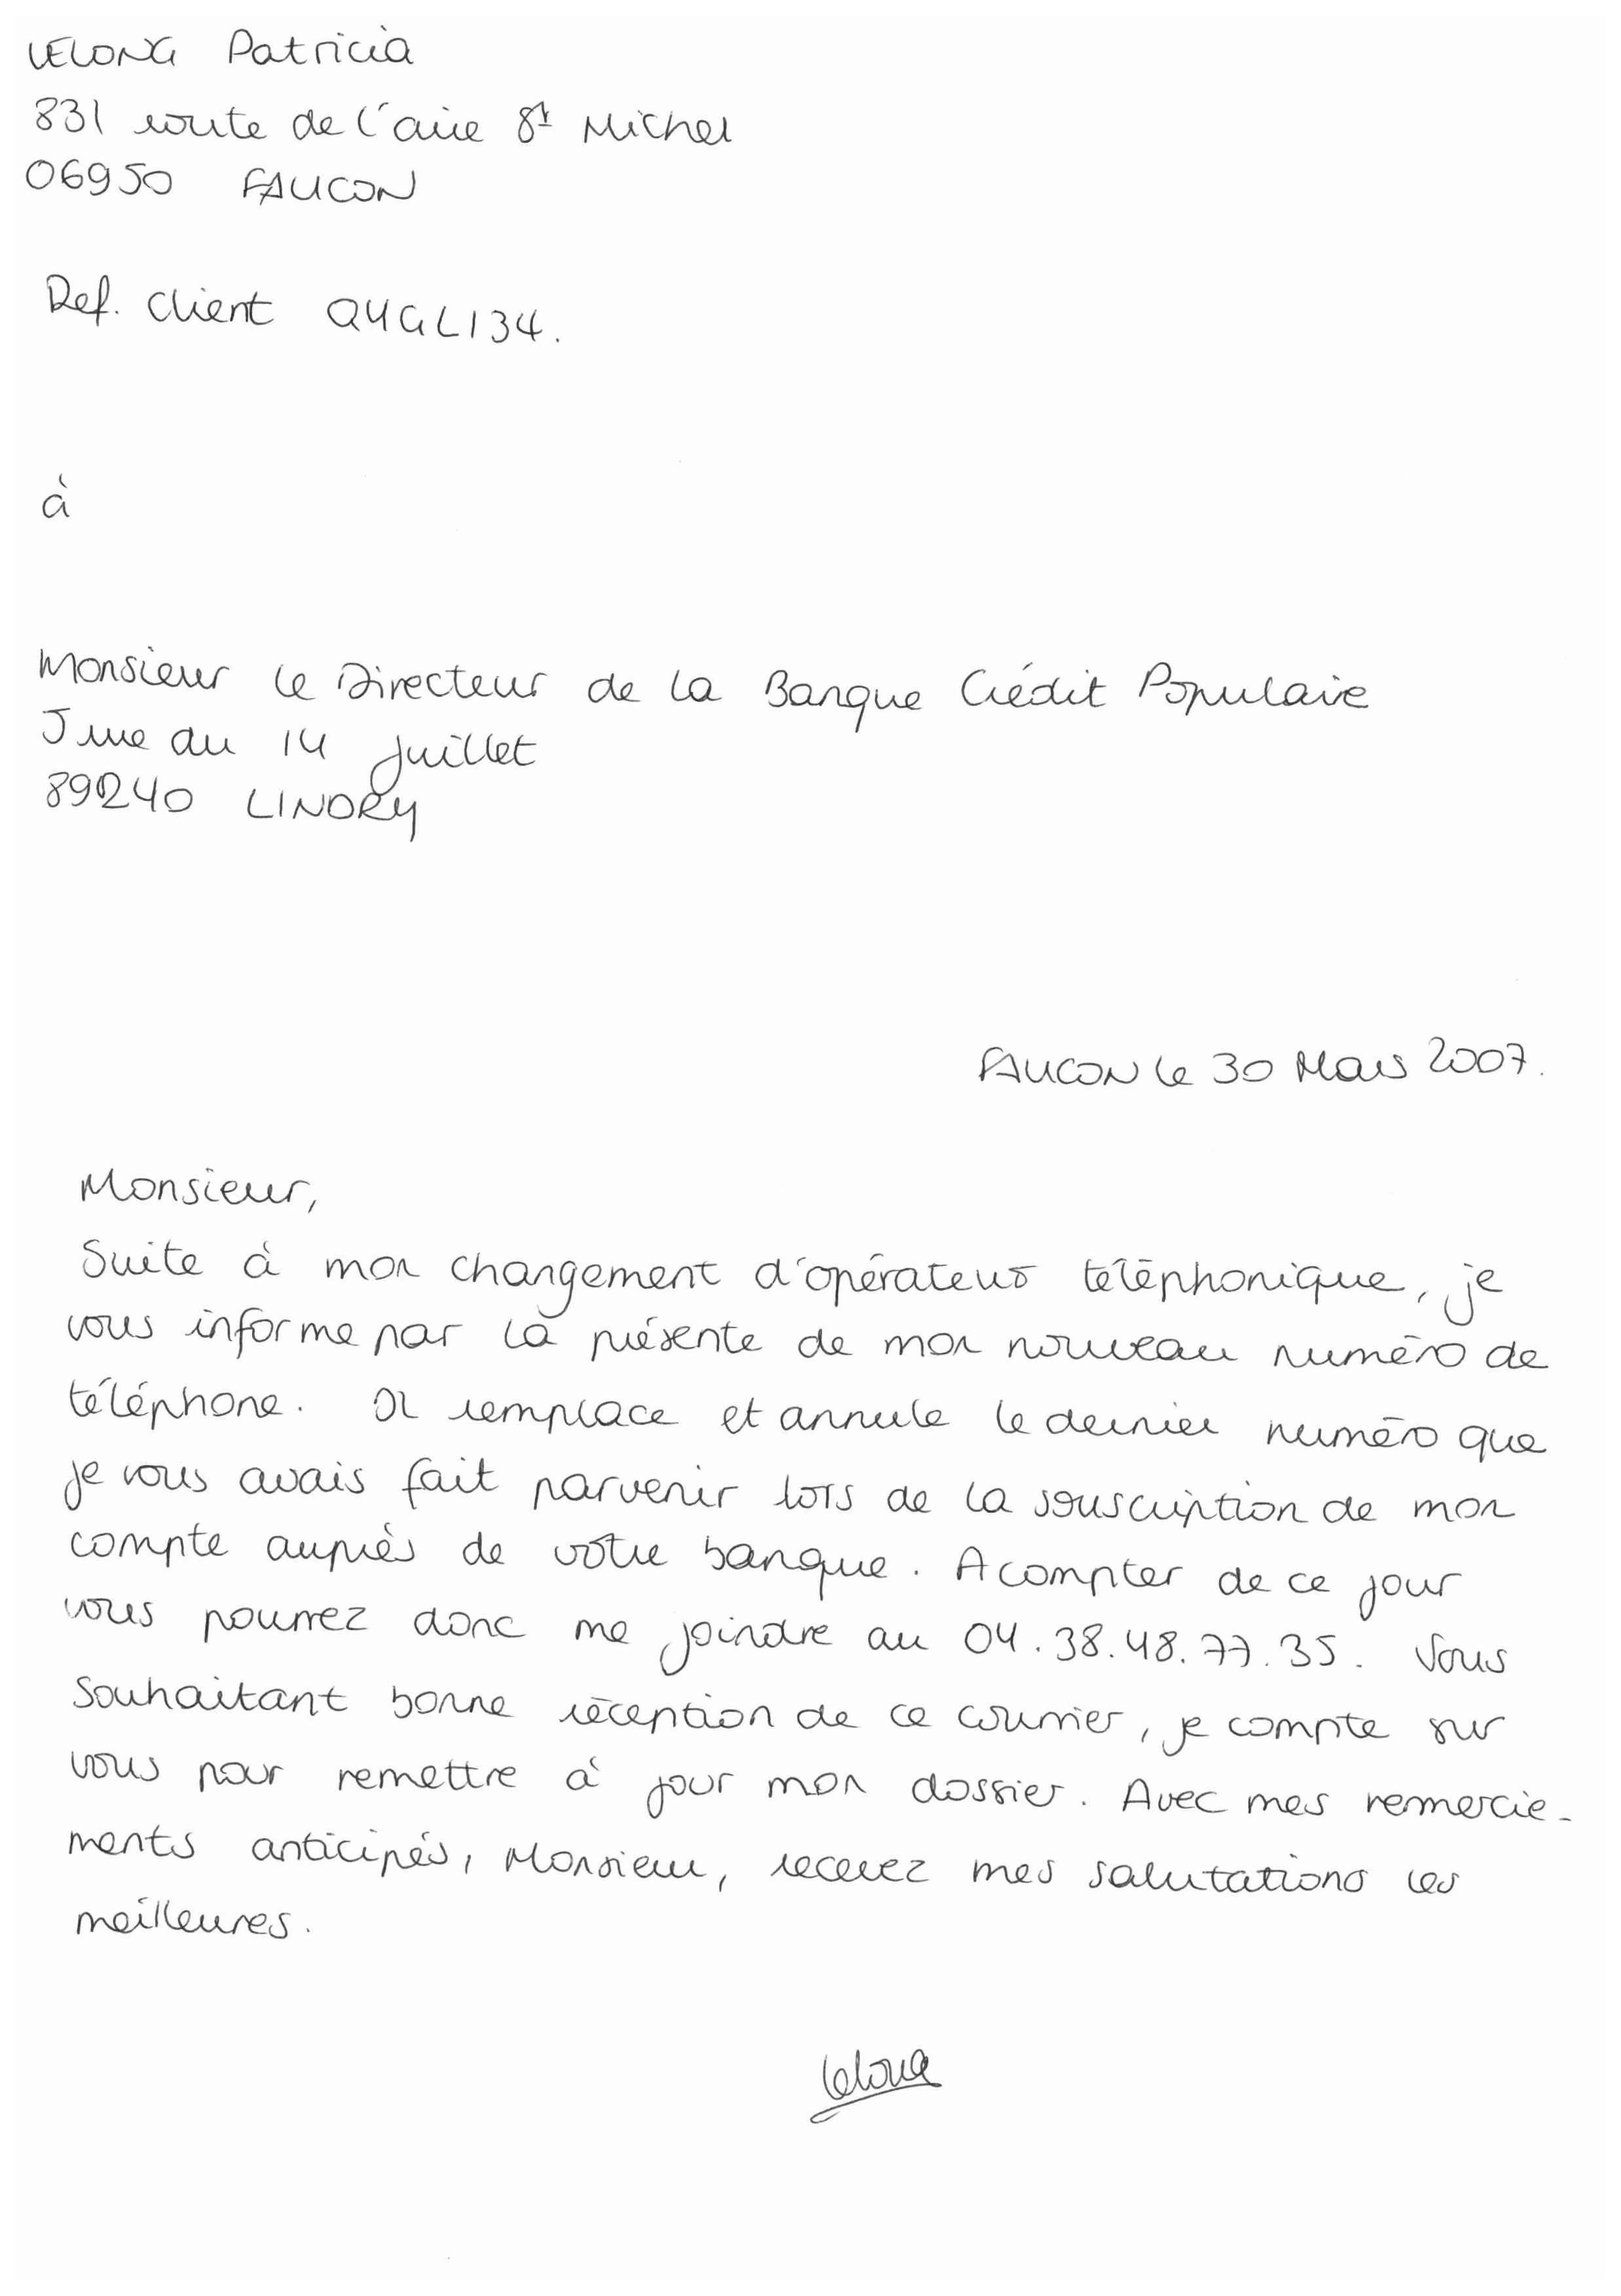 LELONG Patricia
831 route de l'aire St Michel
06950 FAUCON
Ref. Client QYGL134.
à
Monsieur le Directeur de la Banque Crédit Populaire
5 rue du 14 juillet
89240 LINDRY
FAUCON le 30 Mars 2007.
Monsieur,
Suite à mon changement d'opérateur téléphonique, je
vous informe par la présente de mon nouveau numéro de
téléphone. Il remplace et annule le dernier numéro que
je vous avais fait parvenir lors de la souscription de mon
compte auprès de votre banque. A compter de ce jour
vous pourrez donc me joindre au 04.38.48.77.35. Vous
souhaitant bonne réception de ce courrier, je compte sur
vous pour remettre à jour mon dossier. Avec mes remercie-
ments anticipés, Monsieur, recevez mes salutations les
meilleures.
Lelong